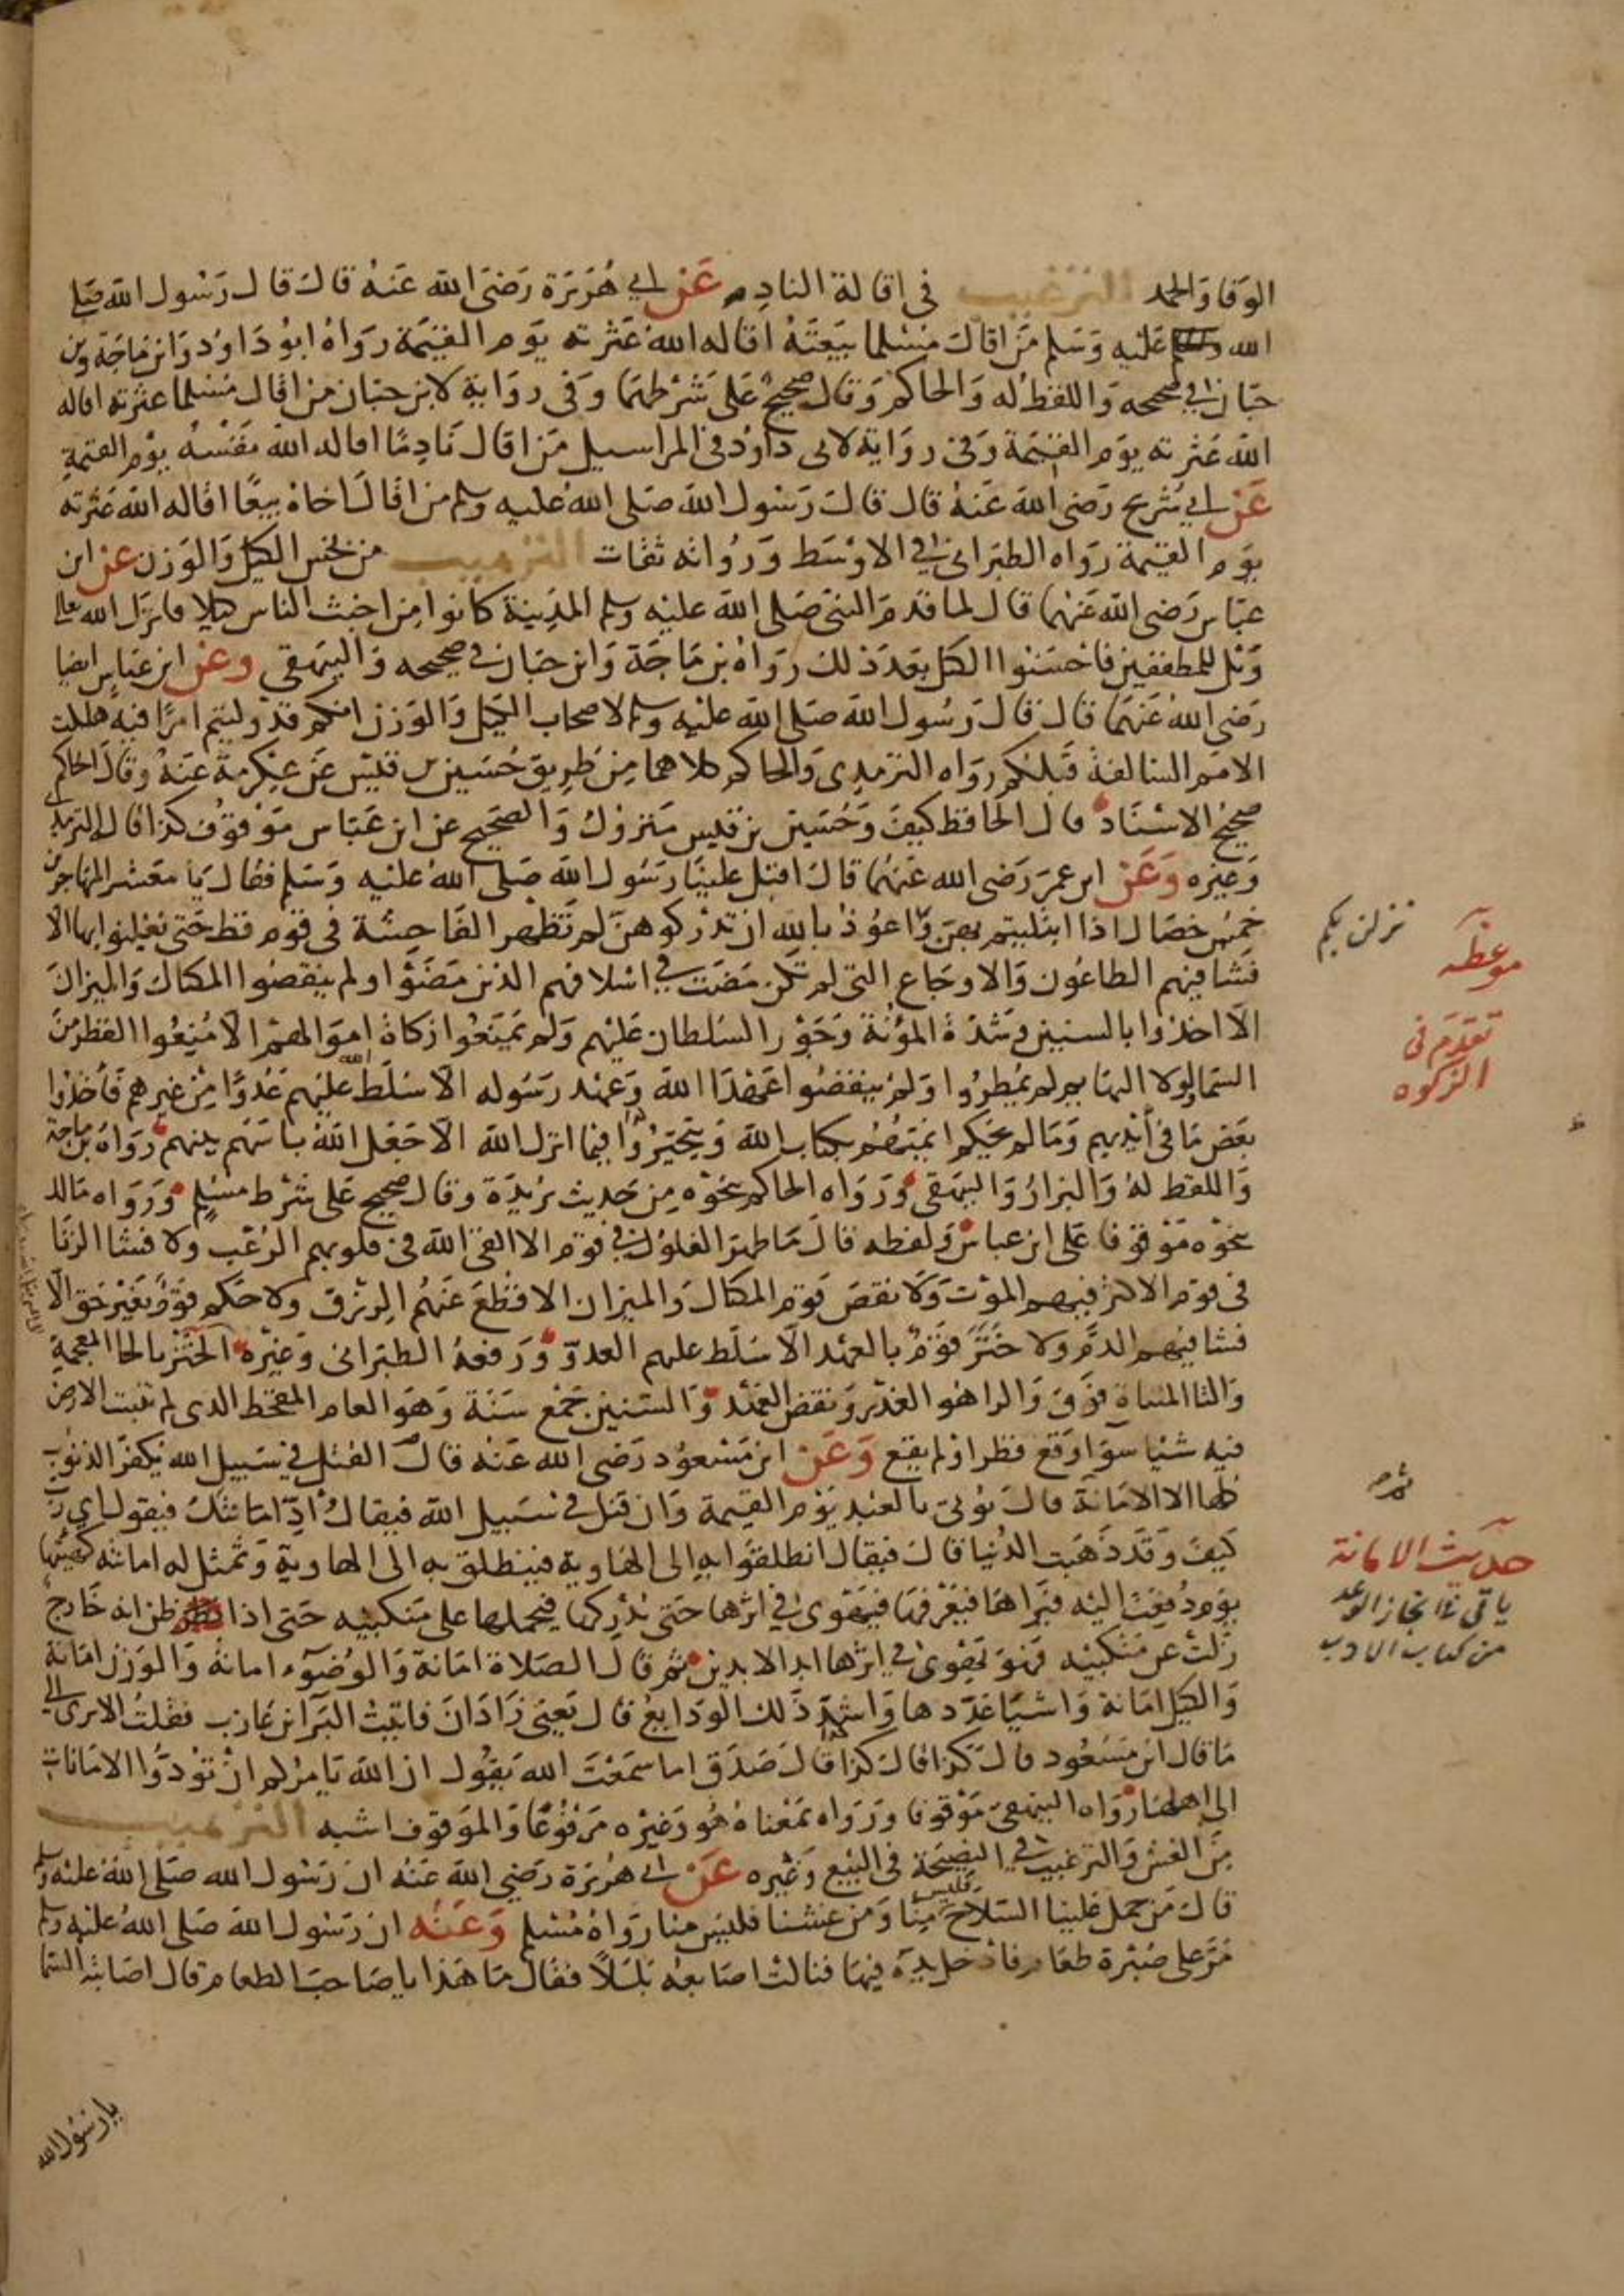 الوفا والحمد الترغيب في اقالة النادم عن ابي هريرة رضي الله عنه قال قال رسول الله صلى
الله عليه وسلم من اقال مسلما بيعته اقاله الله عثرته يوم القيمة رواه ابو داود وابن ماجة وبن
حبان في صحيحه واللفظ له والحاكم وقال صحيح على شرطهما وفي رواية لابن حبان من اقال مسلما عثرته اقاله
الله عثرته يوم القيمة وفي رواية لابي داود في المراسيل من اقال نادما اقاله الله نفسه يوم القيمة
عن ابي شريح رضي الله عنه قال قال رسول الله صلى الله عليه وسلم من اقال اخاه بيعا اقاله الله عثرته
يوم القيمة رواه الطبراني في الاوسط ورواته ثقات الترهيب من بخس الكيل والوزن عن ابن
عباس رضي الله عنهما قال لما قدم النبي صلى الله عليه وسلم المدينة كانوا من اخبث الناس كيلا فانزل الله تعالى
ويل للمطففين فاحسنوا الكيل بعد ذلك رواه بن ماجة وابن حبان في صحيحه والبيهقي وعن ابن عباس ايضا
رضي الله عنهما قال قال رسول الله صلى الله عليه وسلم لاصحاب الكيل والوزن انكم قد وليتم امرا فيه هلكت
الامم السالفة قبلكم رواه الترمذي والحاكم كلاهما من طريق حسين بن قيس عن عكرمة عنه وقال الحاكم
صحيح الاسناد قال الحافظ كيف وحسين بن قيس متروك والصحيح عن ابن عباس موقوف كذا قال الترمذي
وغيره وعن ابن عمر رضي الله عنهما قال اقبل علينا رسول الله صلى الله عليه وسلم فقال يا معشر المهاجرين
خمس خصال اذا ابتليتم بهن واعوذ بالله ان تدركوهن لم تظهر الفاحشة في قوم قط حتى يعلنوا بها الا
فشا فيهم الطاعون والاوجاع التي لم تكن مضت في اسلافهم الذين مضوا ولم ينقصوا المكيال والميزان
الا اخذوا بالسنين وشدة المؤنة وجور السلطان عليهم ولم يمنعوا زكاة اموالهم الا منعوا القطر من
السما ولولا البهايم لم يمطروا ولم ينقضوا عهد الله وعهد رسوله الا سلط الله عليهم عدوا من غيرهم فاخذوا
بعض ما في ايديهم وما لم يحكم ائمتهم بكتاب الله ويتخيروا فيما انزل الله الا جعل الله باسهم بينهم رواه بن ماجة
واللفظ له والبزار والبيهقي ورواه الحاكم بنحوه من حديث بريدة وقال صحيح على شرط مسلم ورواه مالك
بنحوه موقوفا على ابن عباس ولفظه قال ما ظهر الغلول في قوم الا القى الله في قلوبهم الرعب ولا فشا الزنا
في قوم الا كثر فيهم الموت ولا نقص قوم المكيال والميزان الا قطع عنهم الرزق ولا حكم قوم بغير حق الا
فشا فيهم الدم ولا ختر قوم بالعهد الا سلط عليهم العدو ورفعه الطبراني وغيره الختر بالخا المعجمة
والتا المثناة فوق والرا هو الغدر ونقض العهد والسنين جمع سنة وهو العام المقحط الذي لم تنبت الارض
فيه شيا سوا وقع قطر او لم يقع وعن ابن مسعود رضي الله عنه قال القتل في سبيل الله يكفر الذنوب
كلها الا الامانة قال يوتى بالعبد يوم القيمة وان قتل في سبيل الله فيقال اد امانتك فيقول اي رب
كيف وقد ذهبت الدنيا قال فيقال انطلقوا به الى الهاوية فينطلق به الى الهاوية وتمثل له امانته كهيئتها
يوم دفعت اليه فيراها فيعرفها فيهوي في اثرها حتى يدركها فيحملها على منكبيه حتى اذا ظن انه خارج
زلت عن منكبيه فهو يهوي في اثرها ابد الابدين ثم قال الصلاة امانة والوضوء امانة والوزن امانة
والكيل امانة واشيا عددها واشد ذلك الودايع قال يعني زاذان فاتيت البرا بن عازب فقلت الا ترى الى
ما قال ابن مسعود قال كذا قال كذا قال صدق اما سمعت الله يقول ان الله يامركم ان تودوا الامانات
الى اهلها رواه البيهقي موقوفا ورواه بمعناه هو وغيره مرفوعا والموقوف اشبه الترهيب
من الغش والترغيب في النصيحة في البيع وغيره عن ابي هريرة رضي الله عنه ان رسول الله صلى الله عليه وسلم
قال من حمل علينا السلاح فليس منا ومن غشنا فليس منا رواه مسلم وعنه ان رسول الله صلى الله عليه وسلم
مر على صبرة طعام فادخل يده فيها فنالت اصابعه بللا فقال ما هذا يا صاحب الطعام قال اصابته السما
يا رسول الله
نزلن بكم
موعظة
تقدم في
الزكوه
حديث الامانة
ياتي في انجاز الوعد
من كتاب الادب